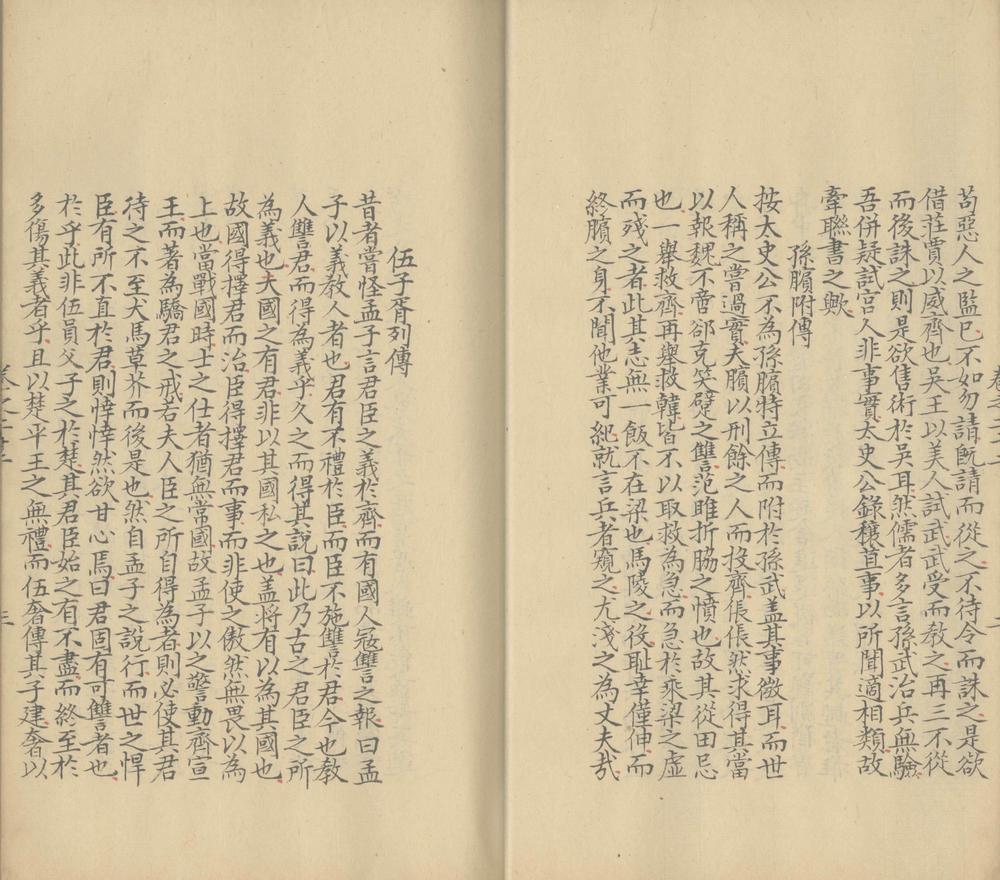 苟惡人之監已不如勿請既請而從之不待令而誅之是欲
借莊賈以威齊也吳王以美人試武武受而教之再三不從
而後誅之則是欲售術於吳耳然儒者多言孫武治兵無驗
吾併疑試宮人非事實太史公錄穰苴事以所聞適相類故
牽聯書之歟
孫臏附傳
按太史公不為孫臏特立傳而附於孫武盖其事微耳而世
人稱之嘗過實夫臏以刑餘之人而投齊倀倀然求得其當
以報魏不啻郤克笑躄之讐范雎折脇之憤也故其從田忌
也一舉救齊再舉救韓皆不以取救為急而急於乘梁之虛
而殘之者此其志無一飯不在梁也馬陵之役耻幸僅伸而
終臏之身不聞他業可紀就言兵者窺之尤淺之為丈夫哉
伍子胥列傳
昔者嘗怪孟子言君臣之義於齊而有國人寇讐之報曰孟
子以義教人者也君有不禮於臣而臣不施讐於君今也教
人讐君而得為義乎久之而得其說曰此乃古之君臣之所
為義也夫國之有君非以其國私之也盖將有以為其國也
故國得擇君而治臣得擇君而事而非使之傲然無畏以為
上也當戰國時士之仕者猶無常國故孟子以之警動齊宣
王而著為驕君之戒若夫人臣之所自得為者則必使其君
待之不至犬馬草芥而後是也然自孟子之說行而世之悍
臣有所不直於君則悻悻然欲甘心焉曰君固有可讐者也
於乎此非伍員父子之於楚其君臣始之有不盡而終至於
多傷其義者乎且以楚平王之無禮而伍奢傳其子建奢以